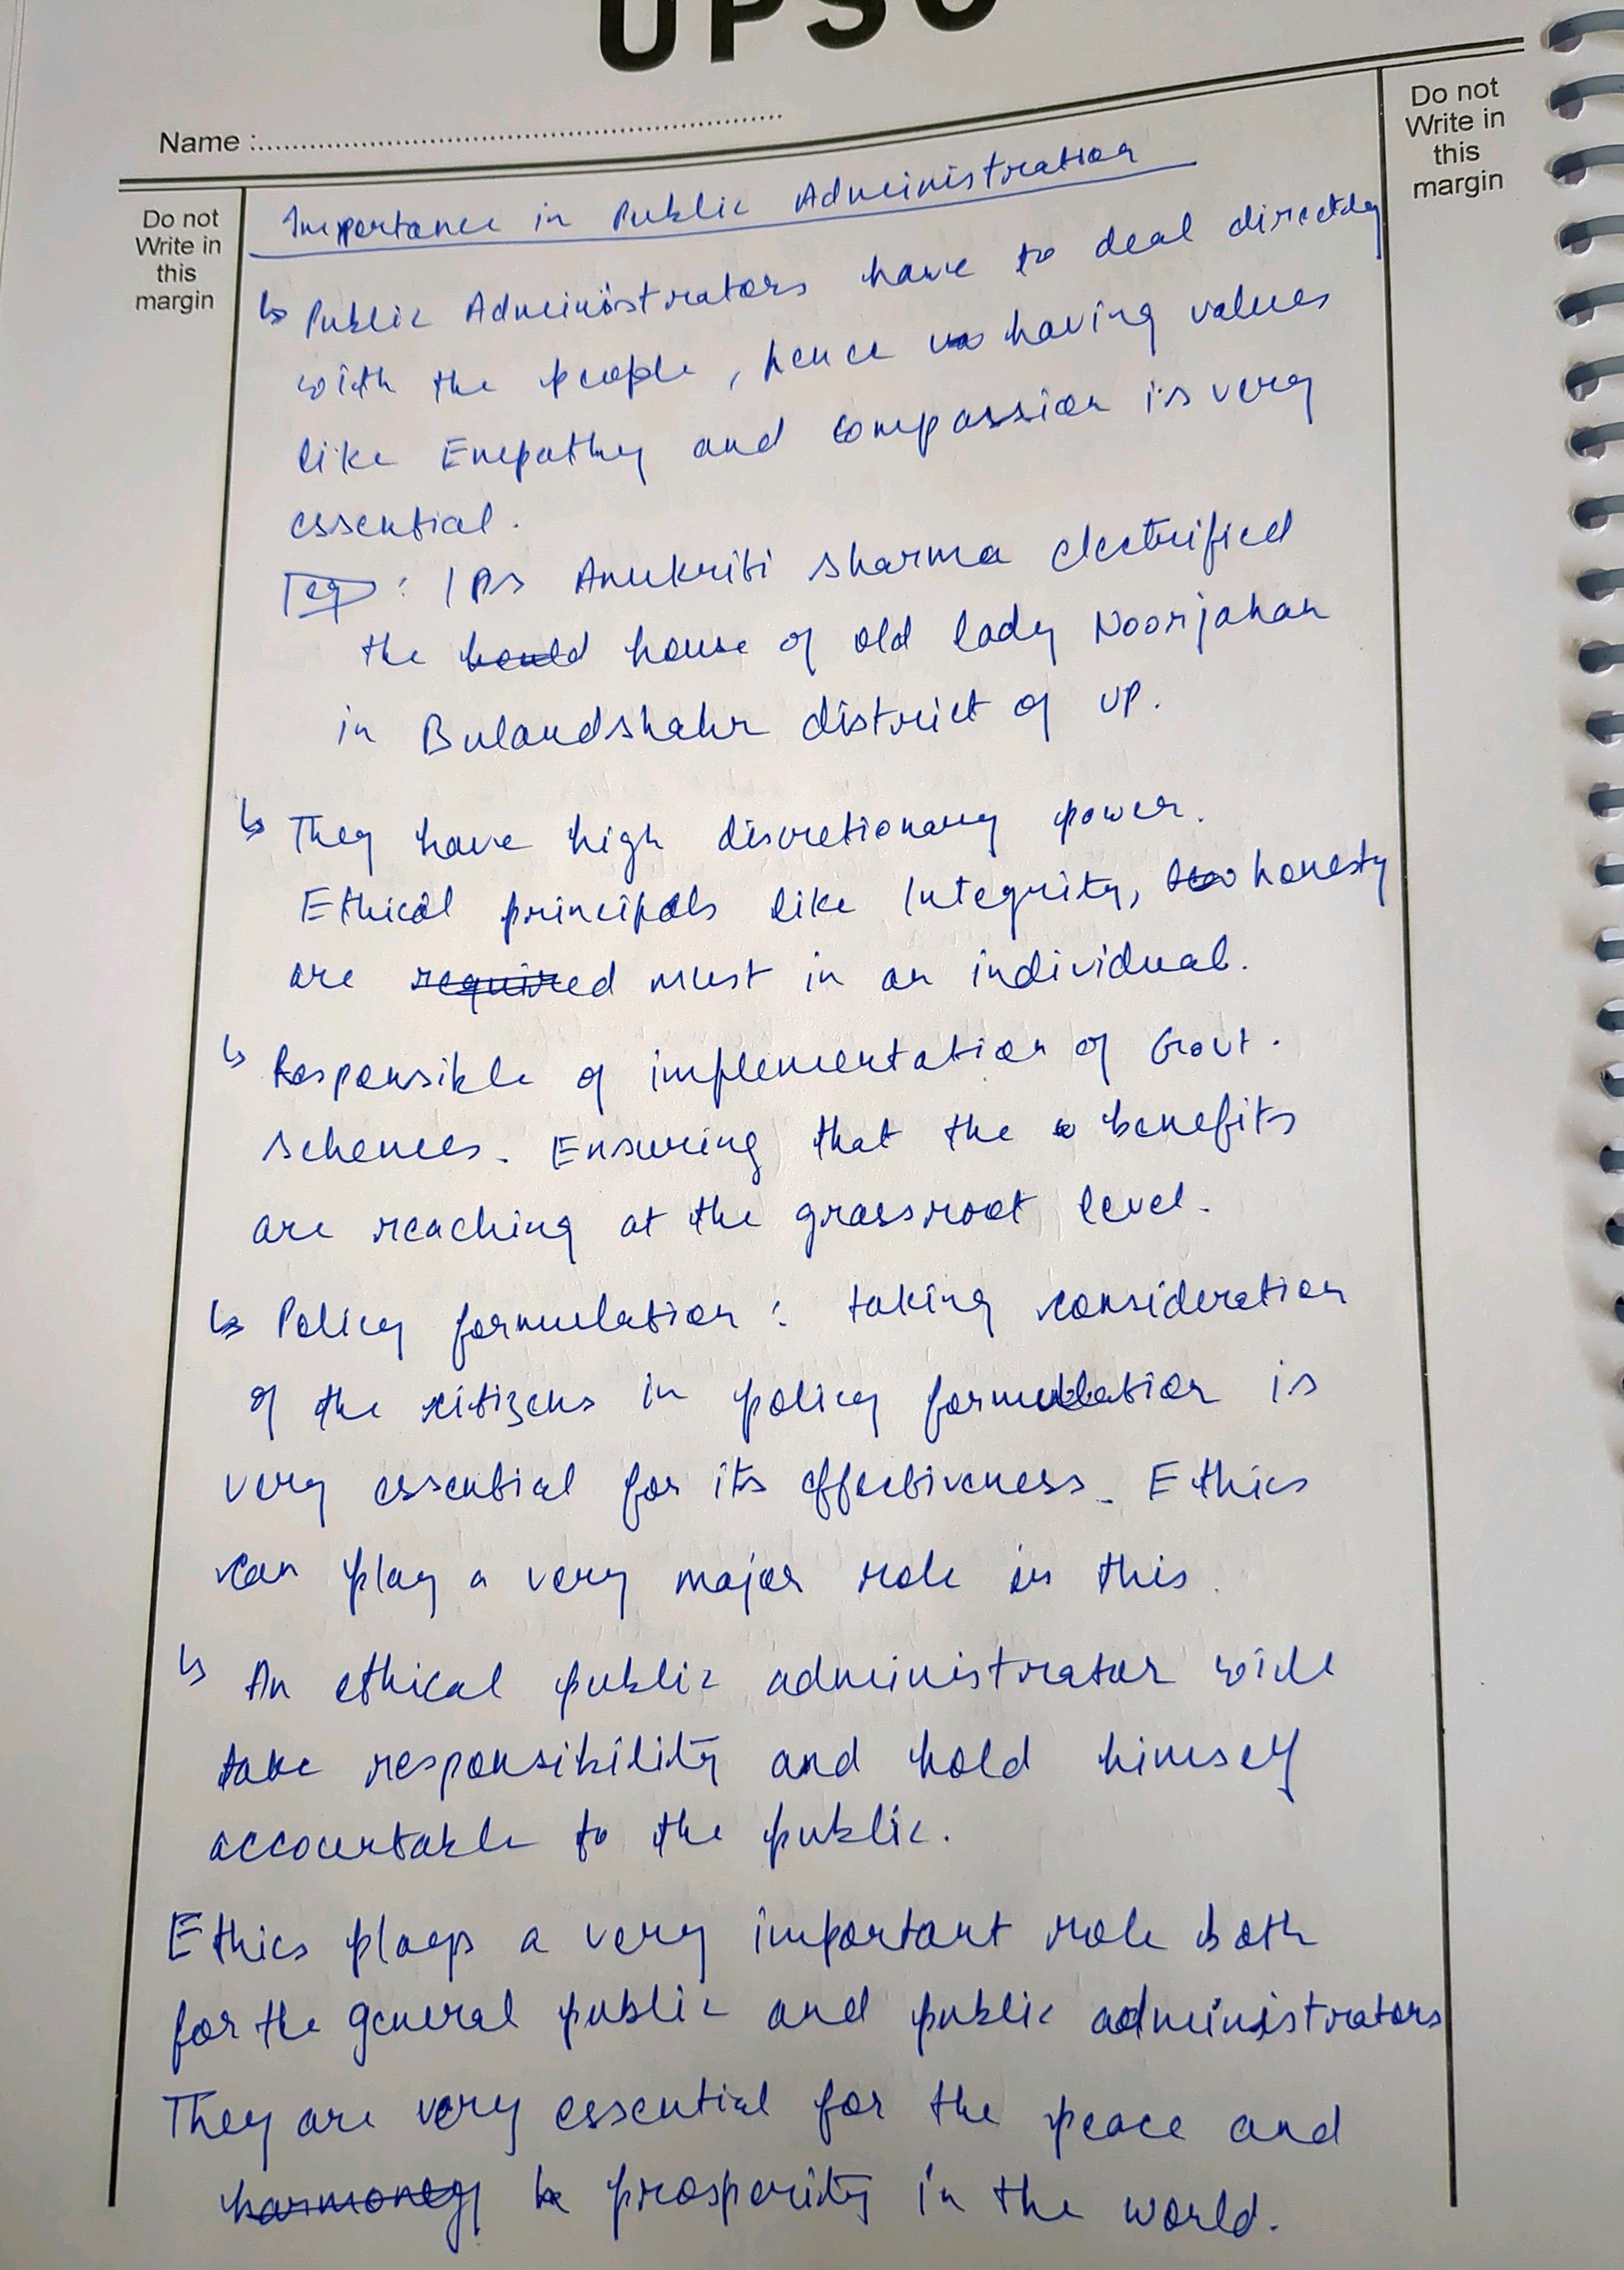 UPSC
Name :
Do not
Write in
this
margin
Do not
Write in
this
margin
Importance in Public Administration
↳ Public Administrators have to deal directly
with the people, hence having values
like Empathy and compassion is very
essential.
eg : IPS Anukriti Sharma electrified
the house of old lady Noorjahan
in Bulandshahr district of UP.
↳ They have high discretionary power.
Ethical principals like Integrity, honesty
are required must in an individual.
↳ Responsible of implementation of Govt.
schemes. Ensuring that the benefits
are reaching at the grassroot level.
↳ Policy formulation : taking consideration
of the citizens in policy formulation is
very essential for its effectiveness. Ethics
can play a very major role in this.
↳ An ethical public administrator will
take responsibility and hold himself
accountable to the public.
Ethics plays a very important role both
for the general public and public administrators
They are very essential for the peace and
harmony & prosperity in the world.